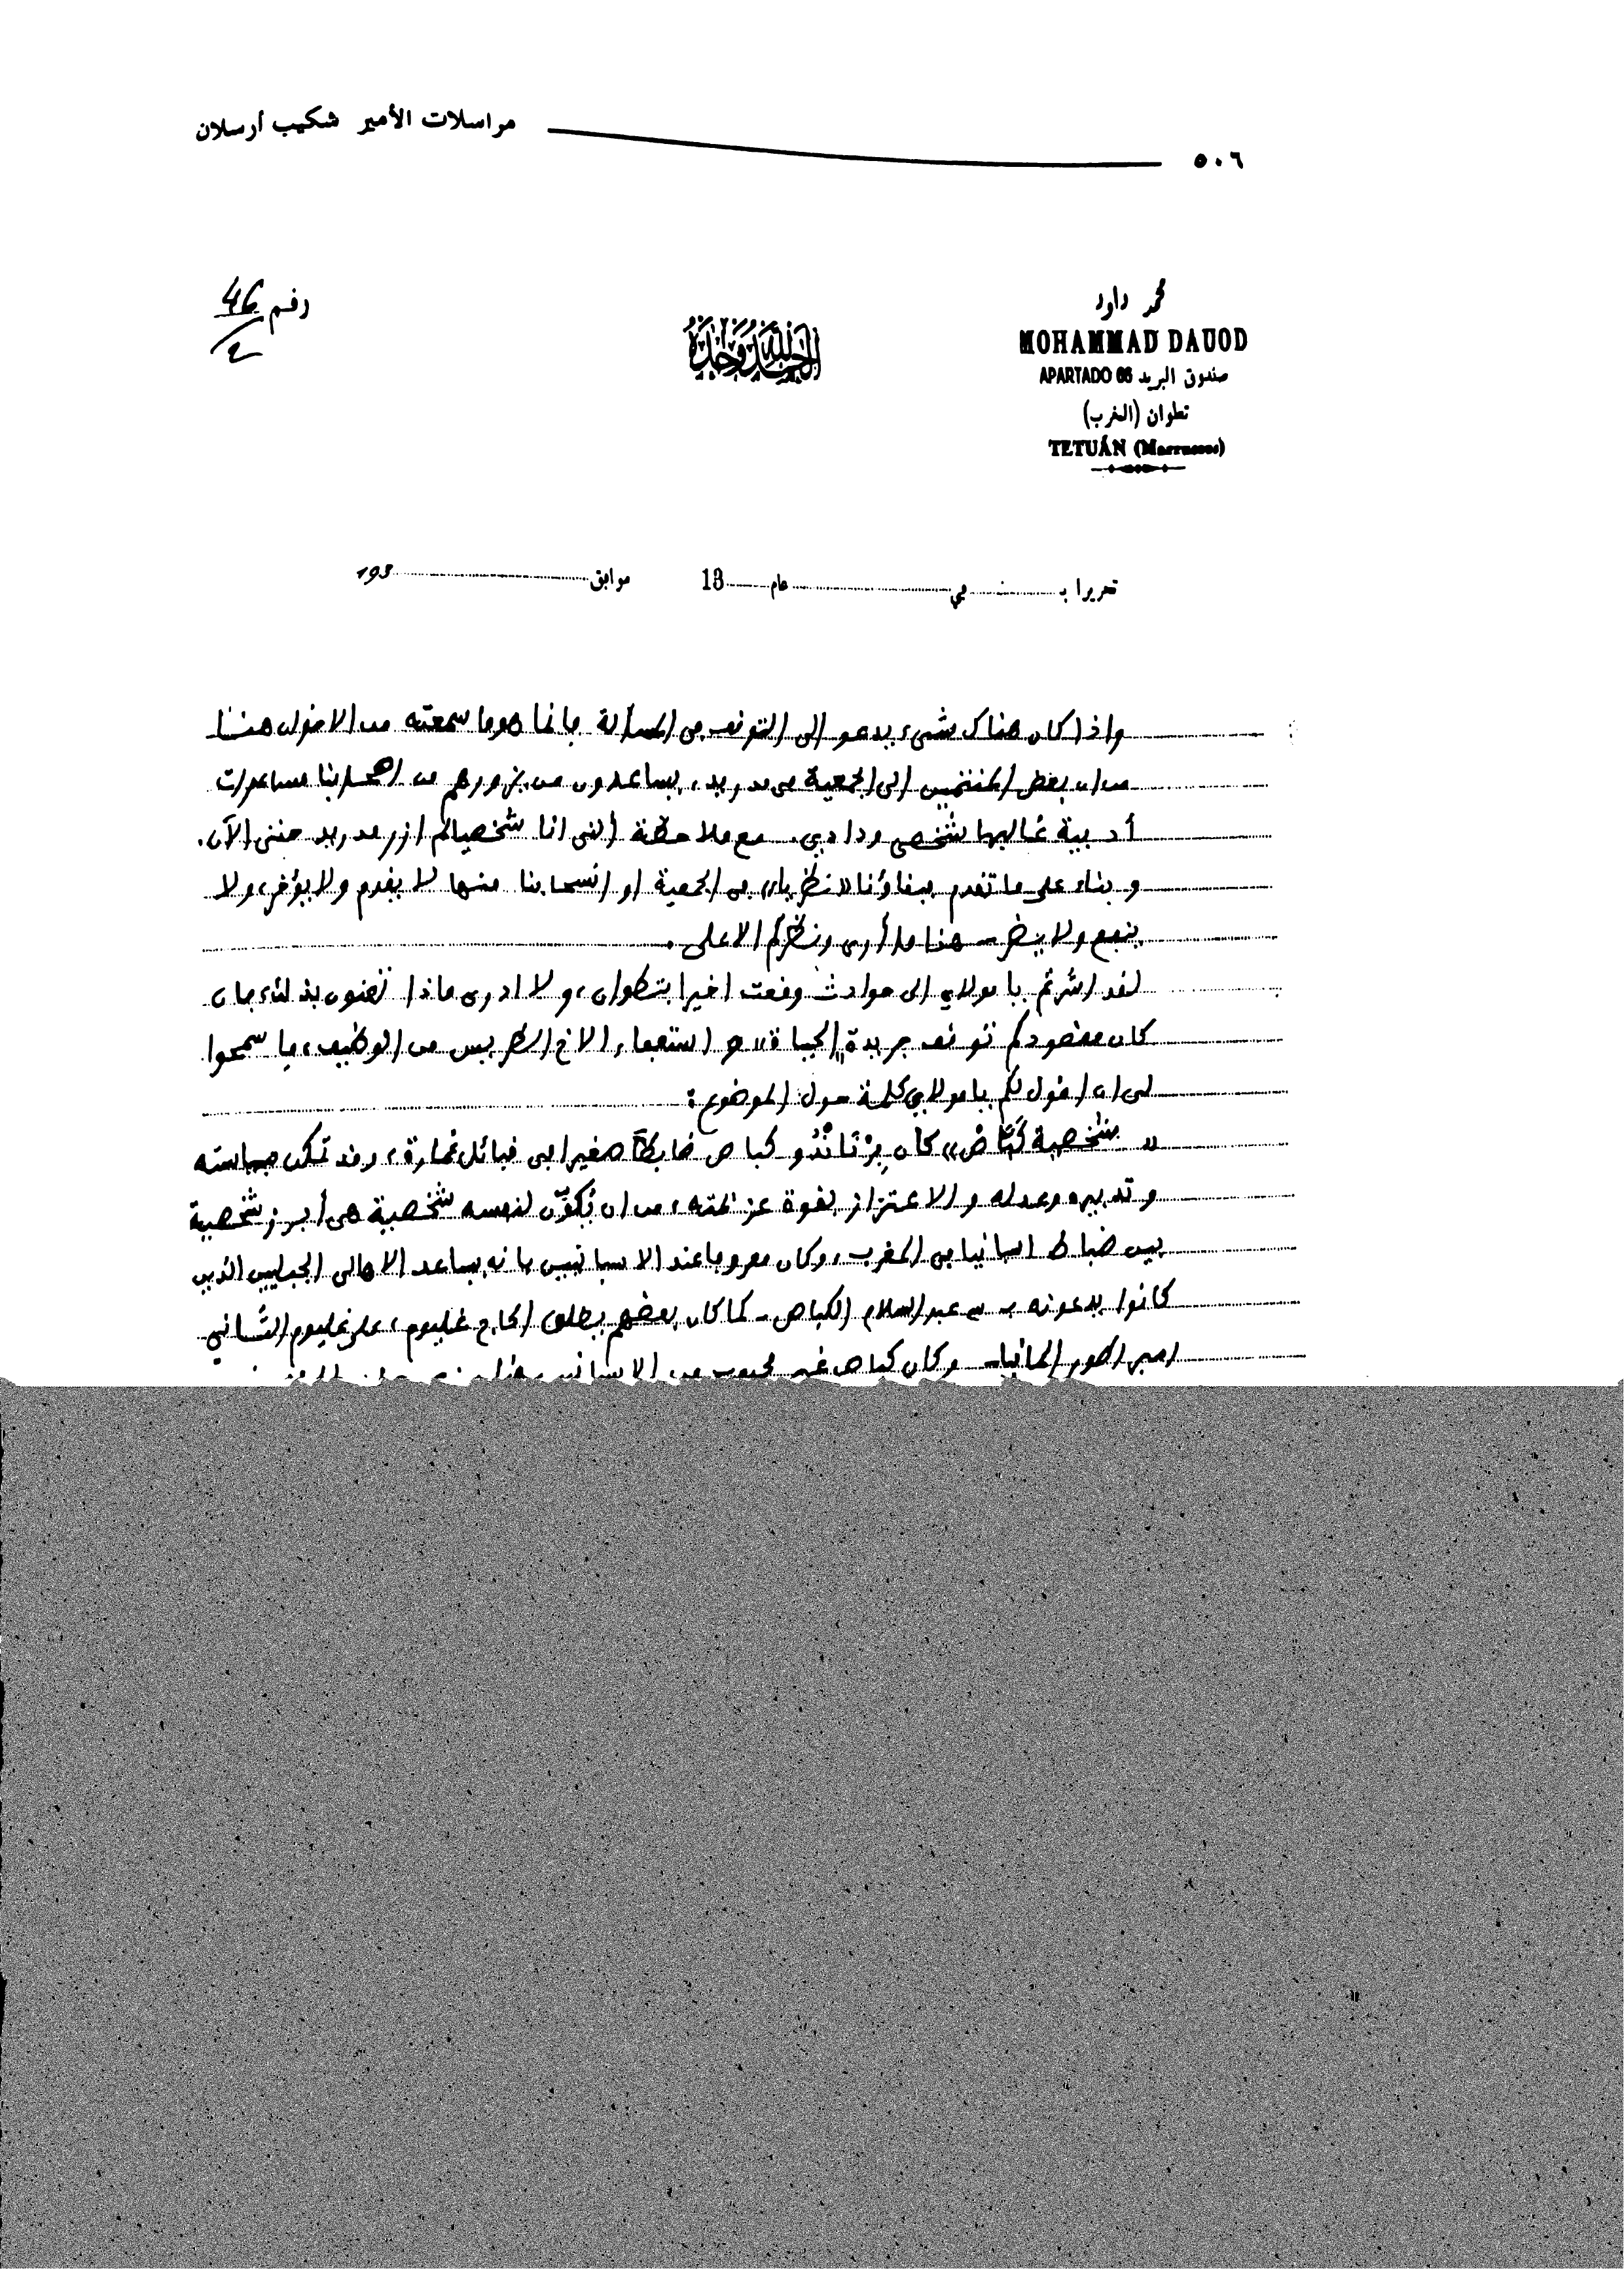 مراسلات الأمير شكيب أرسلان
٥٠٦
رقم 46/2
الحمد لله وحده
محمد داود
MOHAMMAD DAUOD
صندوق البريد APARTADO 66
تطوان (المغرب)
TETUÁN (Marruecos)
تحريرا بـ في عام 13 موافق 193
واذا كان هناك شيء يدعو الى التوقف في المسألة فانما هو ما سمعته من الاخوان هنا
من ان بعض المنتمين الى الجمعية في مدريد، يساعدون من يزورهم من اصحابنا مساعدات
أدبية غالبها شخصي ودادي. مع ملاحظة انني انا شخصيا لم ازر مدريد حتى الآن.
وبناء على ما تقدم فبقاؤنا «نظريا» في الجمعية او انسحابنا منها لا يقدم ولا يؤخر، ولا
ينفع ولا يضر - هذا ما أرى ونظركم الاعلى.
لقد اشرتم يا مولاي الى حوادث وقعت اخيرا بتطوان، ولا ادرى ماذا تعنون بذلك، فان
كان مقصودكم توقف جريدة "الحياة" او استعفاء الاخ الطريس من الوظيف، فاسمحوا
لى ان اقول لكم يا مولاي كلمة حول الموضوع:
«شخصية كباص» كان فرناندو كباص ضابطا صغيرا في قبائل غمارة، وقد تمكن بسياسته
وتدبيره وعدله والاعتزاز بقوة عزيمته، من ان يكوّن لنفسه شخصية هي أبرز شخصية
بين ضباط اسبانيا في المغرب، وكان معروفا عند الاسبانيين بانه يساعد الاهالي الجبليين الذين
كانوا يدعونه بـ سي عبد السلام الكباص - كما كان بعضهم يطلق الحاج غليوم، على غليوم الثاني
امبراطور المانيا - وكان كباص غير محبوب من